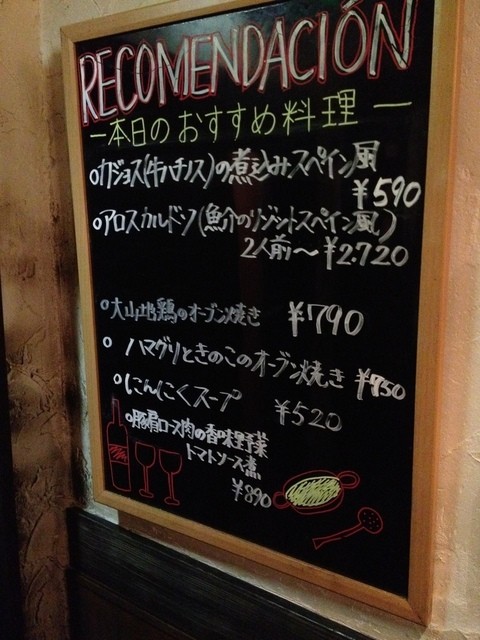 RECOMENDACIÓN
－本日のおすすめ料理－
○カジョス(牛ハチノス)の煮込みスペイン風
￥590
○アロスカルドソ(魚介のリゾットスペイン風)
2人前〜￥2.720
○大山地鶏のオーブン焼き ￥790
○ハマグリときのこのオーブン焼き ￥750
○にんにくスープ ￥520
○豚肩ロース肉の香味野菜
トマトソース煮
￥890